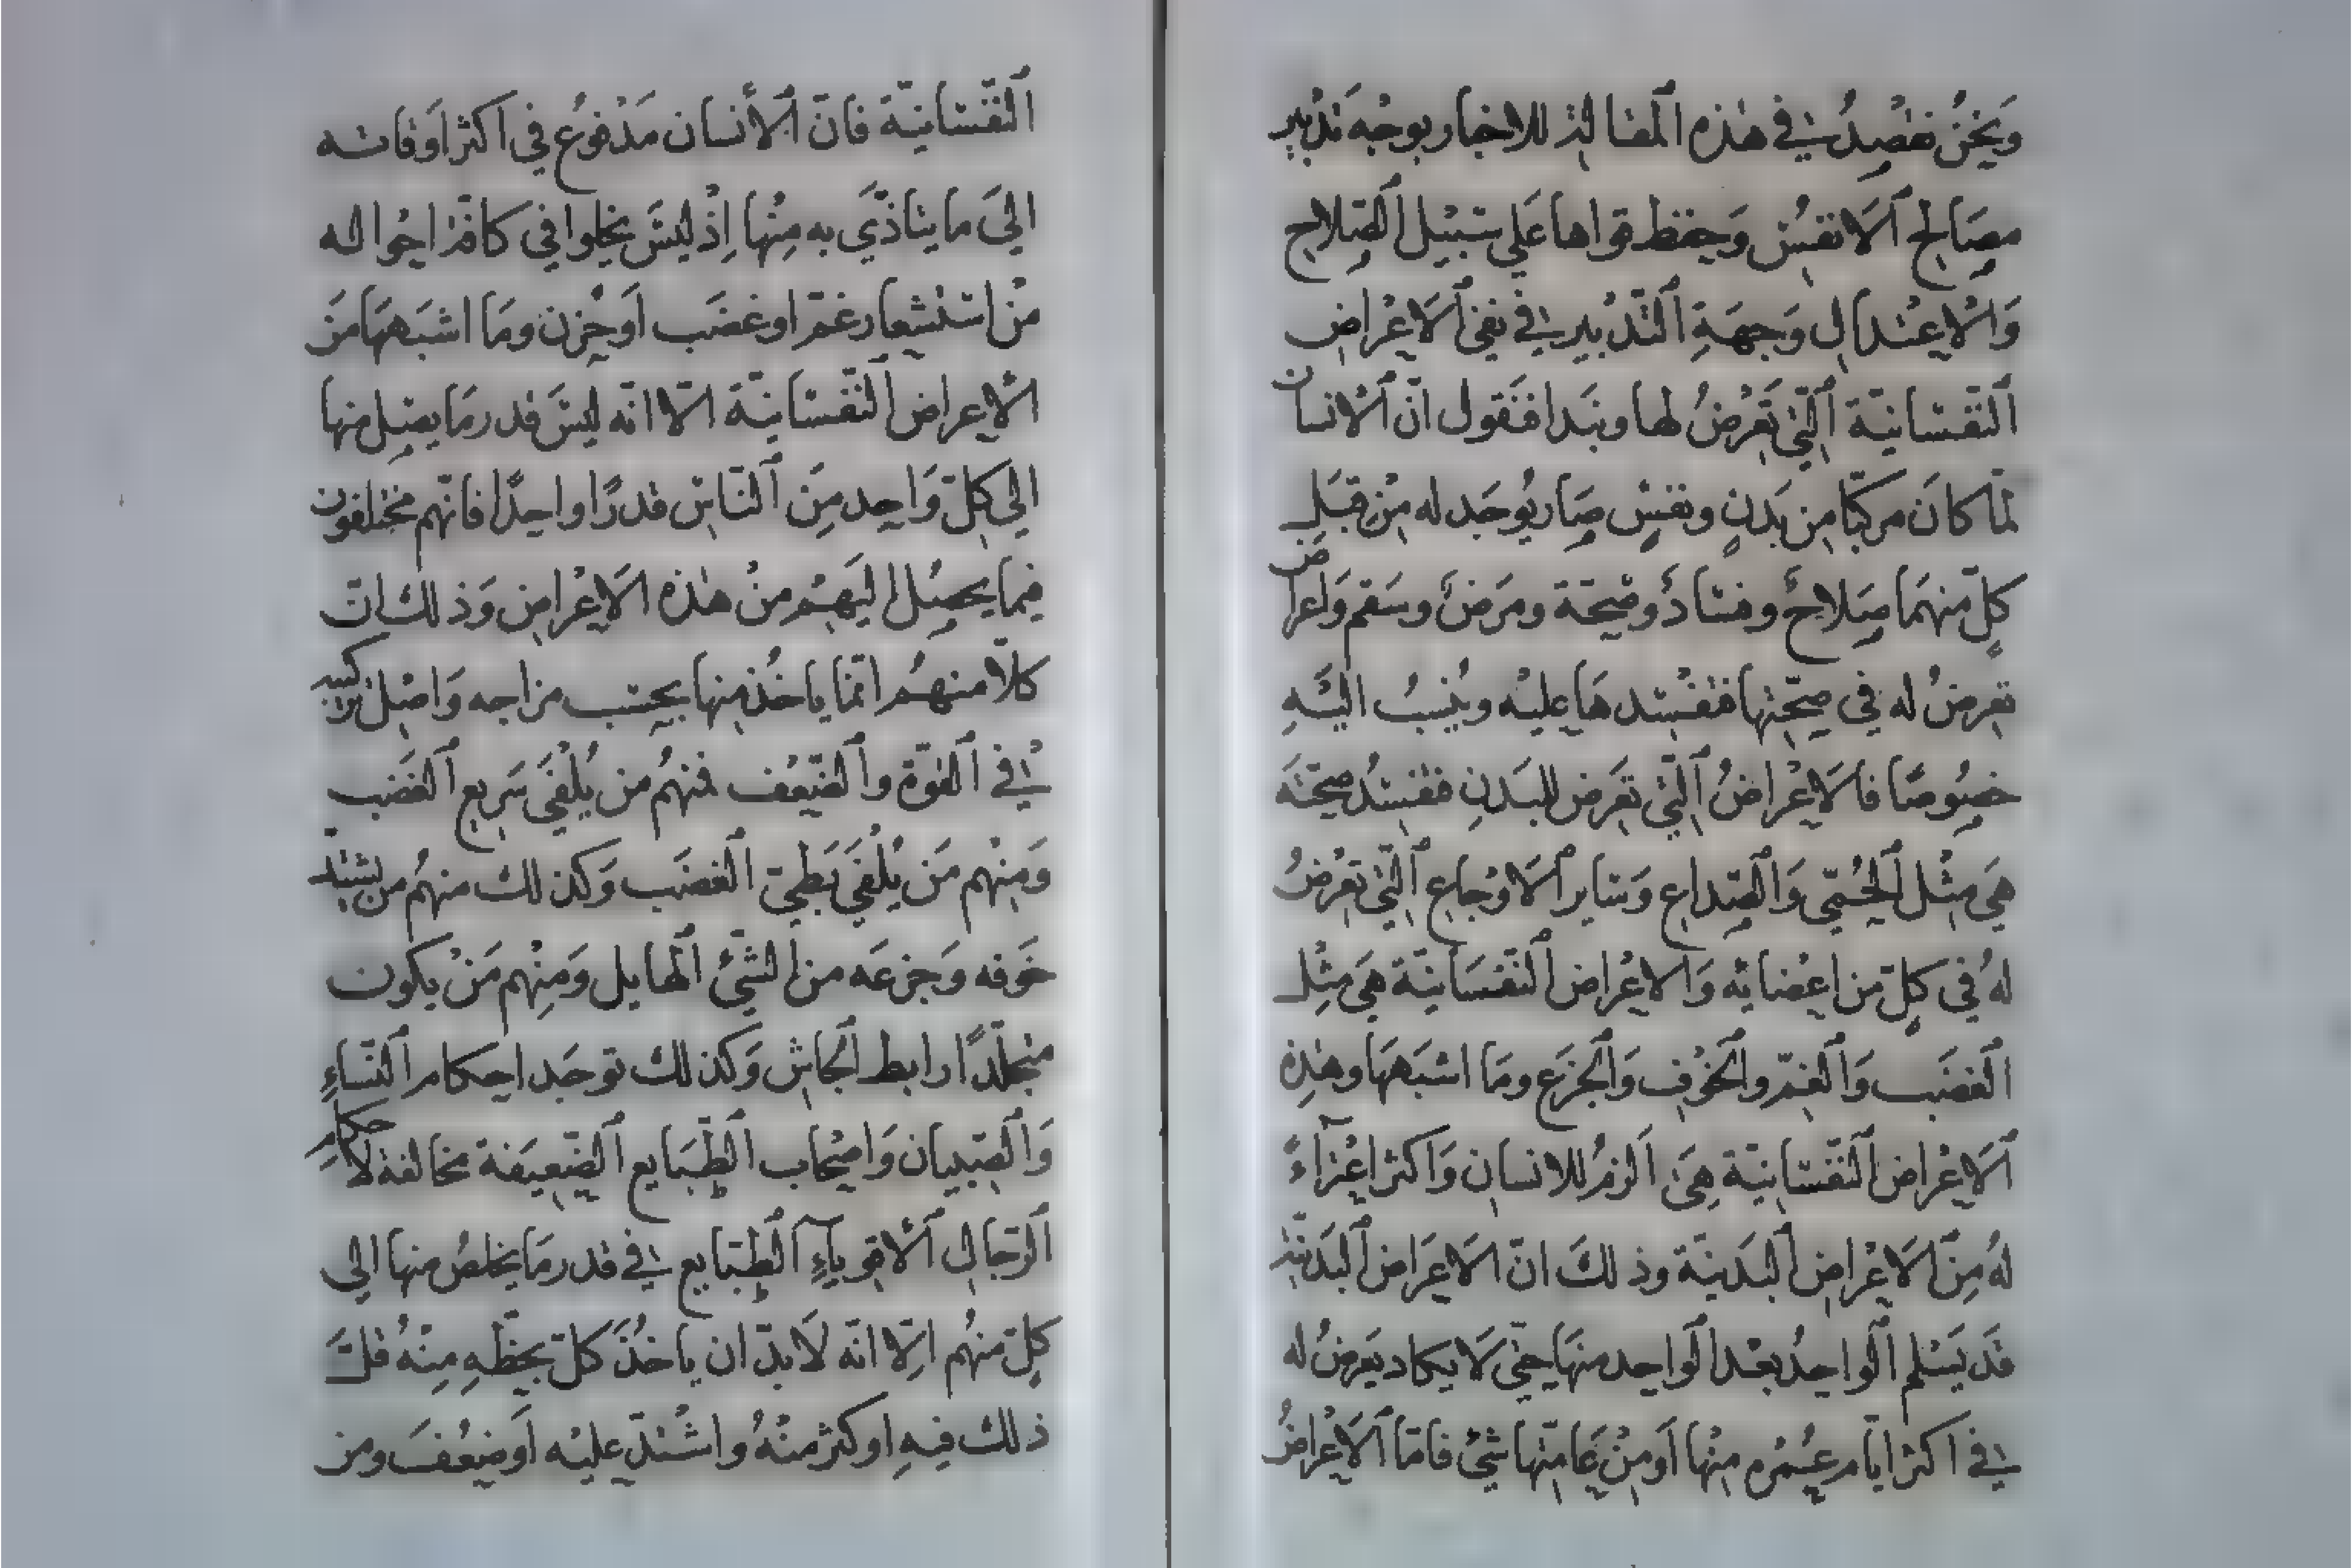 وَنَحْنُ نقْصِدُ في هٰذه المقالة للاخبار بوجْه تَدْبير
مصَالح اَلَانفسُ وَحفظ قواها عَلي سَبيْل الصّلاح
وَالاعْتدال وَجهَةِ التّدْبير في نفي اَلَاعْراض
النّفسانيّة الّتي تَعْرضُ لها ونبَدا فنَقول انّ الانسان
لمّا كانَ مركبّا من بَدنٍ ونفسٍ صَار يُوجَد له مِنْ قبَل
كلّ منهمَا صَلاحٌ وفسَادٌ وصحّة ومرَضٌ وسَقم وَاعراض
تعرضُ له في صحّتها فتفْسدهَا عليْه ويُنسبُ اليْه
خصُوصًا فالَاعْراضُ الّتي تعَرض للبَدنِ فتفسدُ صحّتَه
هيَ مثْل الحُمّي وَالصّداع وَسَاير الَاوْجاع الّتي تعْرضُ
لهُ في كلّ من اعْضائه وَالاعْراض النّفسَانيّة هيَ مثْل
الغضَب وَالغمّ والخوْف وَالجزَع ومَا اشبَههَا وهٰذهِ
اَلَاعْراض النّفسَانيّة هيَ اَلزمُ للانسان وَاكثر اعْتراءً
لهُ مِنَ الَاعْراض البَدنيّة وذلكَ انّ الَاعرَاض البَدنيّة
قَد يَسْلم الوَاحدُ بعْد الوَاحد منهَا حتّي لَا يكاد يعَرضُ له
في اكثر ايّام عمُرْه منْها اَو منْ عَامّتها شيْ فامّا اَلَاعْراضُ
النّفسَانيّة فانّ اَلأنسان مَدْفوعٌ في اكثر اَوقاته
اليَ ما يتاذّيَ به مِنْها اِذْ ليْسَ يخلوا في كافّة احْواله
منْ استشعار غمّ او غضَب اَو حُزن ومَا اشبَههَا منَ
الاعراض النّفسَانيّة الّا انّه ليْسَ قدر مَا يصل منها
الي كلّ وَاحد مِنَ النّاس قدرًا واحدًا فانّهم مختلفون
فيما يحصُل اليَهمْ منْ هٰذه الَاعْراض وَذلك انّ
كلّا منهمُ انّما ياخُذ منها بحسَب مزاجه وَاصْل تركيبه
في القوّة والضّعْف فمنهُم من يُلْفَي سَريع الغَضب
وَمنْهم مَن يُلْفَي بَطيّ الغضَب وَكذلك منهمُ من يشتدّ
خَوفه وَجزعَه من الشّيُ الهايل وَمِنْهم مَنْ يكون
متجلّدًا رابط الجَاش وَكذلك توجَد احكام النّسَاءِ
وَالصّبيان وَاصْحاب الطّبَايع الضّعيَفة مخالفة لاحكام
الرّجال الَاقوياءِ الطّبَايع في قدر مَا يخلصُ منها الي
كلّ منهُم الّا انّه لَا بدّ ان ياخُذَ كلّ بحظّهِ مِنْهُ قلّ
ذلك فيهِ او كثر منْهُ واشْتدّ عليْه اَو ضعُفَ ومن